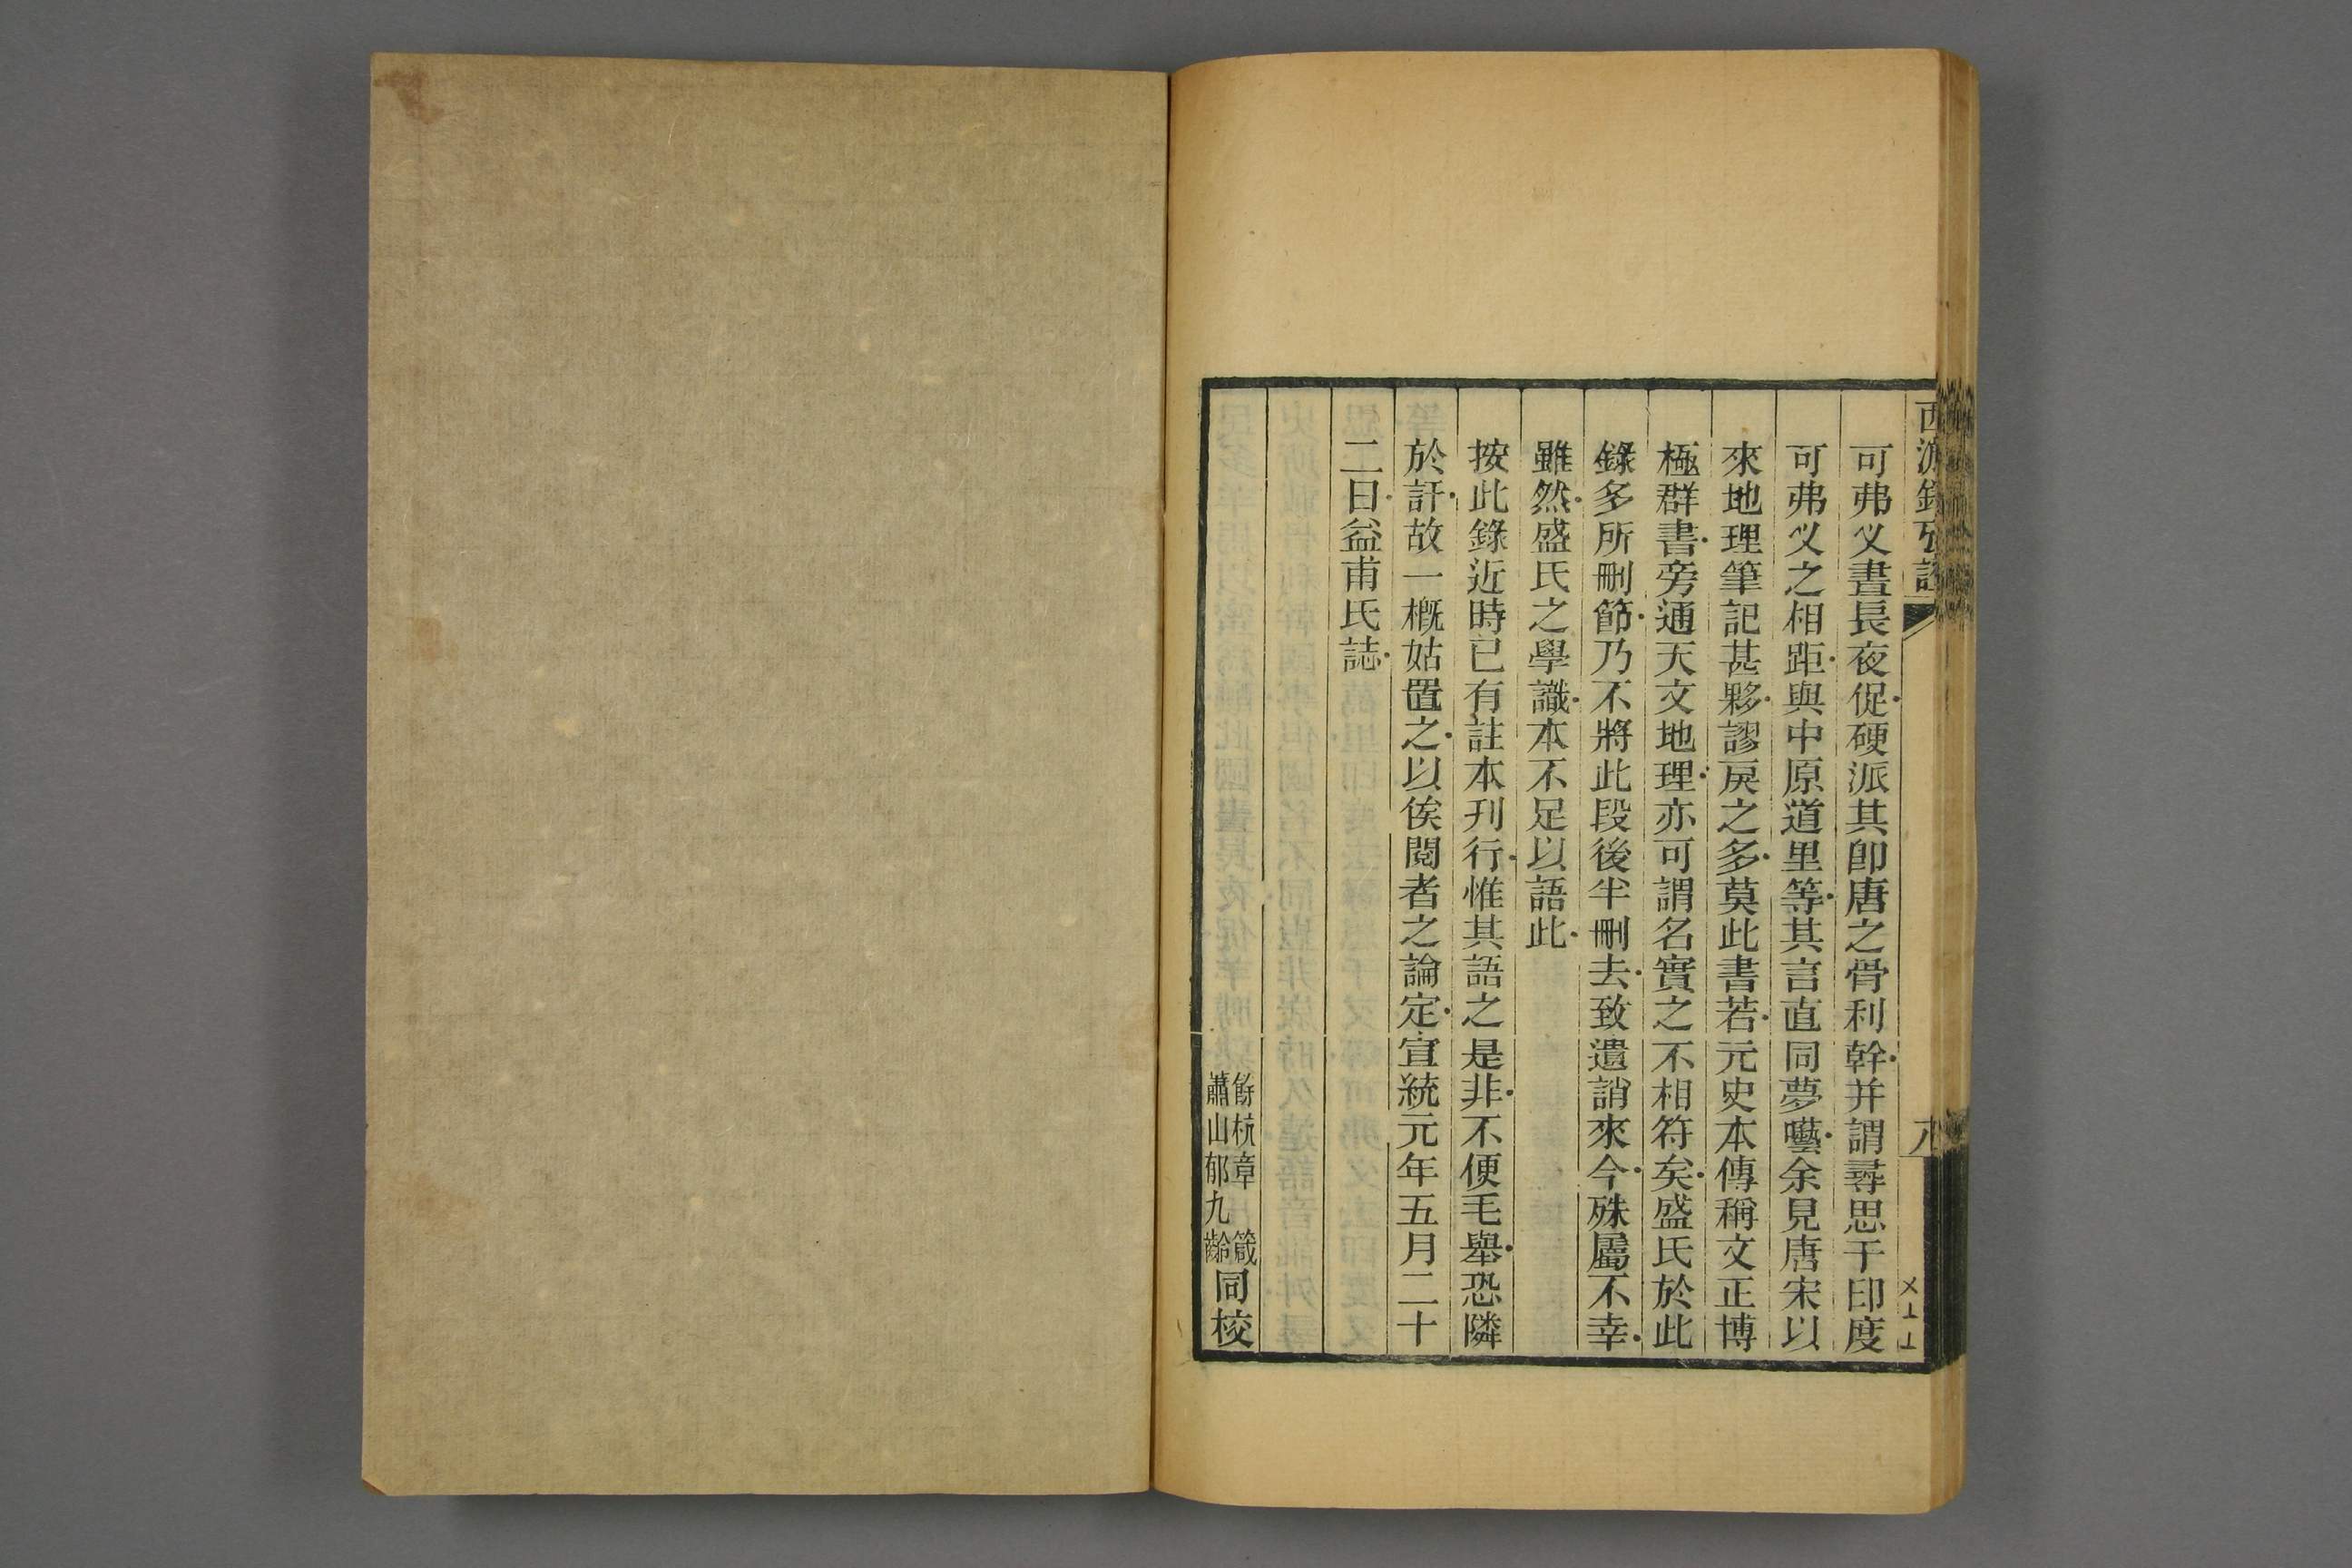 可弗叉晝長夜促硬派其卽唐之骨利幹并謂尋思干印度
可弗叉之相距與中原道里等其言直同夢囈余見唐宋以
來地理筆記甚夥謬戾之多莫此書若元史本傳稱文正博
極群書旁通天文地理亦可謂名實之不相符矣盛氏於此
錄多所刪節乃不將此段後半刪去致遺誚來今殊屬不幸
雖然盛氏之學識本不足以語此
按此錄近時已有註本刊行惟其語之是非不便毛舉恐隣
於訐故一概姑置之以俟閱者之論定宣統元年五月二十
二日益甫氏誌
餘杭章箴
蕭山郁九齡
同校